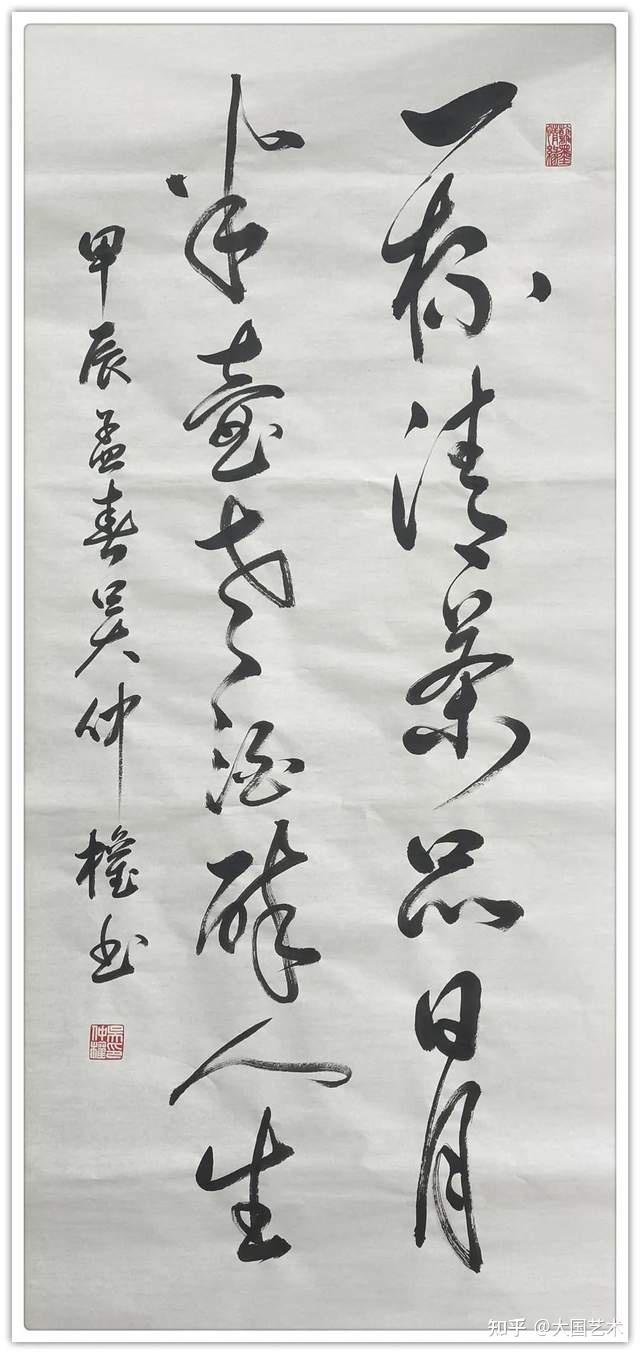 一杯清茶品日月
半壺老酒醉人生
甲辰孟春吴仲權书
吴印仲權
知乎 @大国艺术